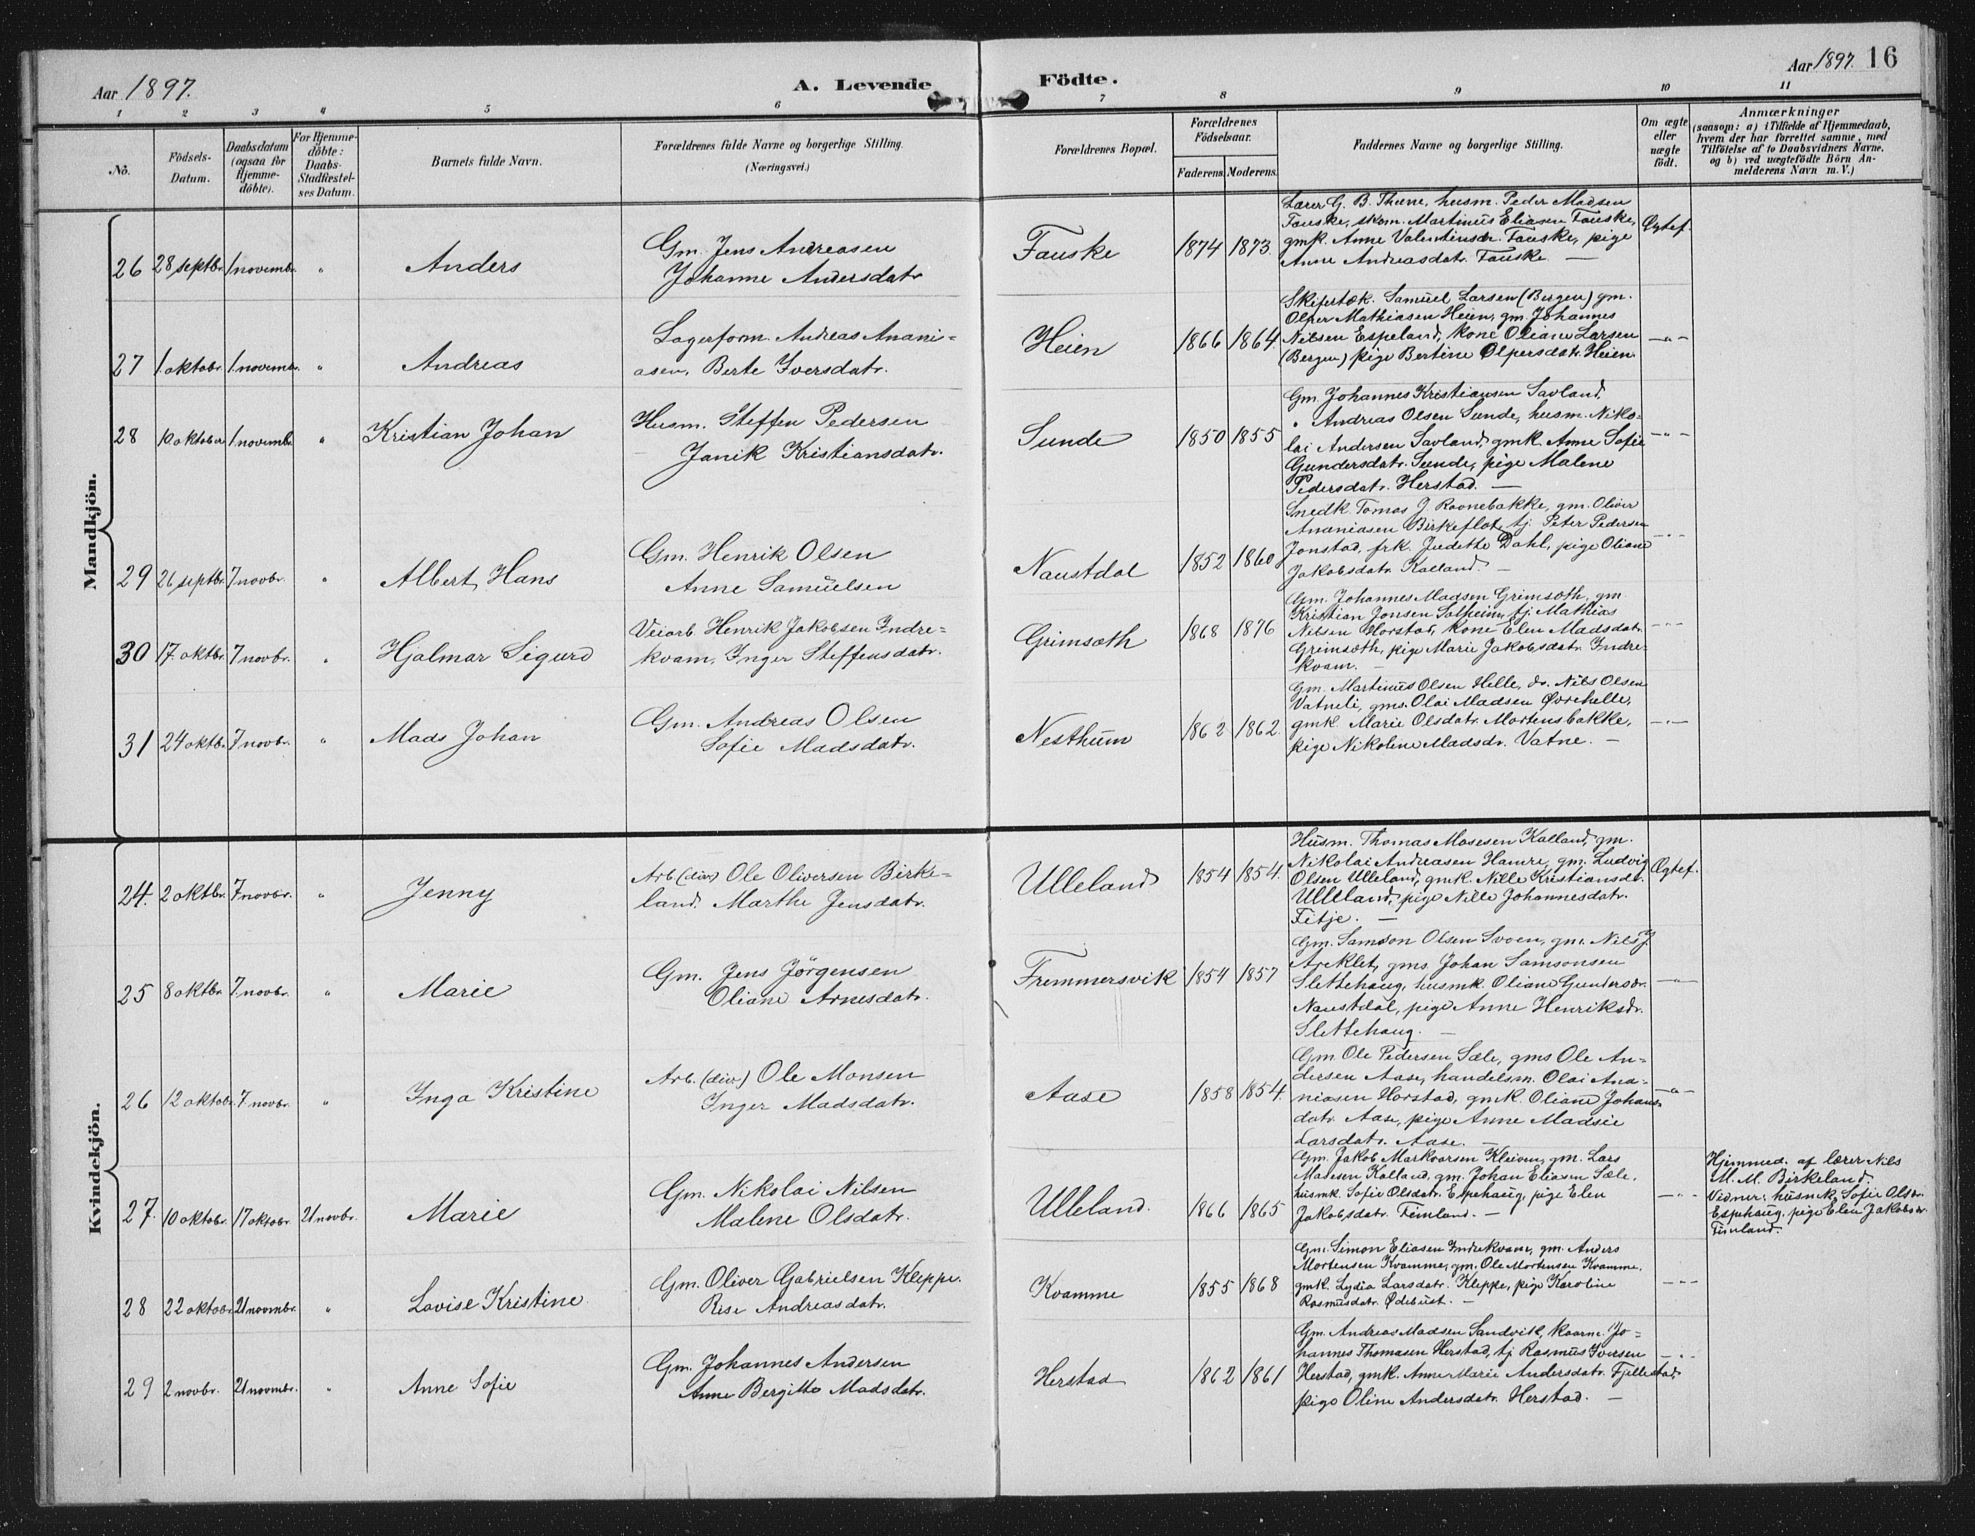 Aar 1897.
A. Levende
Födte.
Aar 1897. 16
1 2 3 4 5 6 7 8 9 10 11
No.
Födsels-Datum.
Daabsdatum (ogsaa for Hjemme-döbte).
For Hjemme-döbte: Daabs-Stadfæstel-ses Datum.
Barnets fulde Navn.
Forældrenes fulde Navne og borgerlige Stilling.
(Næringsvei.)
Forældrenes Bopæl.
Forældrenes Födselsaar.
Faderens. Moderens.
Faddernes Navne og borgerlige Stilling.
Om ægte eller uægte födt.
Anmærkninger
(saasom: a) i Tilfælde af Hjemmedaab,
hvem der har forrettet samme, med
Tilföielse af to Daabsvidners Navne.
og b) ved uægtefödte Börn An-
melderens Navn m. V.)
Mandkjön.
26 28 septbr. 1 novembr. " Anders
Gm. Jens Andreasen
Johanne Andersdatr.
Fauske 1874 1873.
Lærer G. B. Thune, husm. Peder Madsen
Fauske, skom. Martinus Eliasen Fauske,
gmk. Anne Valentinsdr. Fauske, pige
Anne Andreasdatr. Fauske. —
Ægtef.
27 1 oktobr. 1 novembr. " Andreas
Lagerform. Andreas Anani-
asen, Berte Iversdatr.
Heien 1866 1864.
Skifertæk. Samuel Larsen (Bergen) gm.
Olper Mathiasen Heien, gm. Johannes
Nilsen Espeland, kone Oliane Larsen
(Bergen) pige Bertine Olpersdatr. Heien.
—"—
28 10 oktober 1 novembr. " Kristian Johan
Husm. Steffen Pedersen
Janik Kristiansdatr.
Sunde 1850 1855
Gm. Johannes Kristiansen Savland,
" Andreas Olsen Sunde, husm. Niko-
lai Andersen Savland, gmk. Anne Sofie
Gundersdatr. Sunde, pige Malene
Pedersdatr. Herstad. —
—"—
29 26 septbr. 7 novbr. " Albert Hans
Gm. Henrik Olsen
Anne Samuelsen
Naustdal 1852 1860
Smedk Tomas J. Ravnebakke, gm. Oliver
Ananiasen Birkeflot, tj. Peter Pedersen
Jonstad, frk. Judette Dahl, pige Oliane
Jakobsdatr. Kalland. —
—"—
30 17 oktbr. 7 novbr. " Hjalmar Sigurd
Veiarb. Henrik Jakobsen Indre-
kvam, Inger Steffensdatr.
Grimsæth 1868 1876
Gm. Johannes Madsen Grimsæth, gm.
Kristian Jonsen Solheim, tj. Mathias
Nilsen Horstad, kone Elen Madsdatr.
Grimsæth, pige Marie Jakobsdatr. Indre-
kvam. —
—"—
31 24 oktbr. 7 novbr. " Mads Johan
Gm. Andreas Olsen
Sofie Madsdatr.
Nesthum 1862 1862.
Gm. Martinus Olsen Helle, do. Nils Olsen
Vatneli, gms. Olai Madsen Øvrehelle,
gmk. Marie Olsdatr. Mortensbakke,
pige Nikoline Madsdr. Vatne. —
—"—
Kvindekjön.
24. 2 oktbr. 7 novbr. " Jenny
Arb (div) Ole Oliversen Birke-
land. Marthe Jensdatr.
Ulleland 1854 1854.
Husm. Thomas Mosesen Kalland, gm.
Nikolai Andreasen Hamre, gm. Ludvig
Olsen Ulleland, gmk. Nille Kristiansdr.
Ulleland, pige Nille Johannesdatr.
Fitje. —
Ægtef.
25 8 oktbr. 7 novbr. " Marie
Gm. Jens Jörgensen
Oliane Arnesdatr.
Fremmersvik 1854 1857
Gm. Samson Olsen Svoen, gm. Nils J.
Areklet, gms. Johan Samsonsen
Slettehaug, husmk. Oliane Gundersdr.
Naustdal, pige Anne Henriksdr.
Slettehaug. —
—"—
26 12 oktobr. 7 novbr. " Inga Kristine
Arb. (div) Ole Monsen
Inger Madsdatr.
Aase 1858 1854.
Gm Ole Pedersen Sæle, gms Ole An-
dersen Aase, handelsm. Olai Ana-
niasen Horstad, gmk. Oliane Johans-
datr. Aase, pige Anne Madsie
Larsdatr. Aase. —
—"—
27. 10 oktobr. 17 oktobr. 21 novbr. Marie
Gm. Nikolai Nilsen
Malene Olsdatr.
Ulleland. 1866 1865
Gm. Jakob Markvarsen Kleiven, gm. Lars
Madsen Kalland, gm. Johan Eliasen Sæle,
husmk. Sofie Olsdatr. Espehaug, pige Elen
Jakobsdatr. Feimland. —
—"—
Hjemmed. af lærer Nils
M. M. Birkeland.
Vidner: husmk. Sofie Olsdr.
Espehaug, pige Elen Jakobsdr.
Fimland.
28 22 oktobr. 21 novembr. " Lovise Kristine
Gm. Oliver Gabrielsen Kleppe.
Rise Andreasdatr.
Kvamme 1855 1868
Gm. Simon Eliasen Indrekvam, gm. Anders
Mortensen Kvamme, gm. Ole Mortensen Kvamme,
gmk. Lydia Larsdatr. Kleppe, pige Karoline
Rasmusdatr. Ødebust. —
—"—
29 2 novbr. 21 novembr. " Anne Sofie
Gm. Johannes Andersen
Anne Bergitte Madsdatr.
Herstad 1862 1861
Gm. Andreas Madsen Sandvik, kaarm. Jo-
hannes Thomasen Herstad, tj. Rasmus Iversen
Herstad, gmk. Anne Marie Andersdatr. Fjellestad,
pige Oline Andersdatr. Herstad. —
—"—